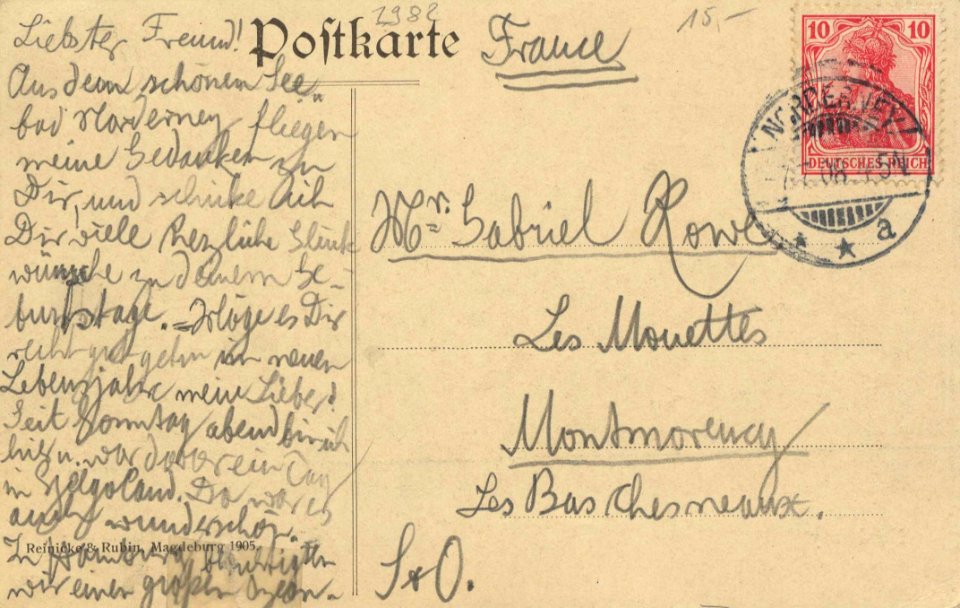 Liebster Freund!
Aus dem schönen See-
bad Norderney fliegen
meine Gedanken zu
Dir, und schicke ich
Dir viele herzliche Glück
wünsche zu deinem Ge-
burtstage. Möge es Dir
recht gut gehn im neuen
Lebensjahre mein Lieber!
Seit Sonntag abend bin ich
hier u. war davor ein Tag
in Helgoland. Da war es
auch wunderschön.
In Hamburg besichtigten
wir einen großen Ozean-
Reinicke & Rubin, Magdeburg 1905.
Postkarte
1982
15,-
France
10 10
DEUTSCHES REICH
NORDERNEY
08
a
Mr. Gabriel Rowe
Les Mouettes
Montmorency
Les Bas Chesneaux.
S & O.